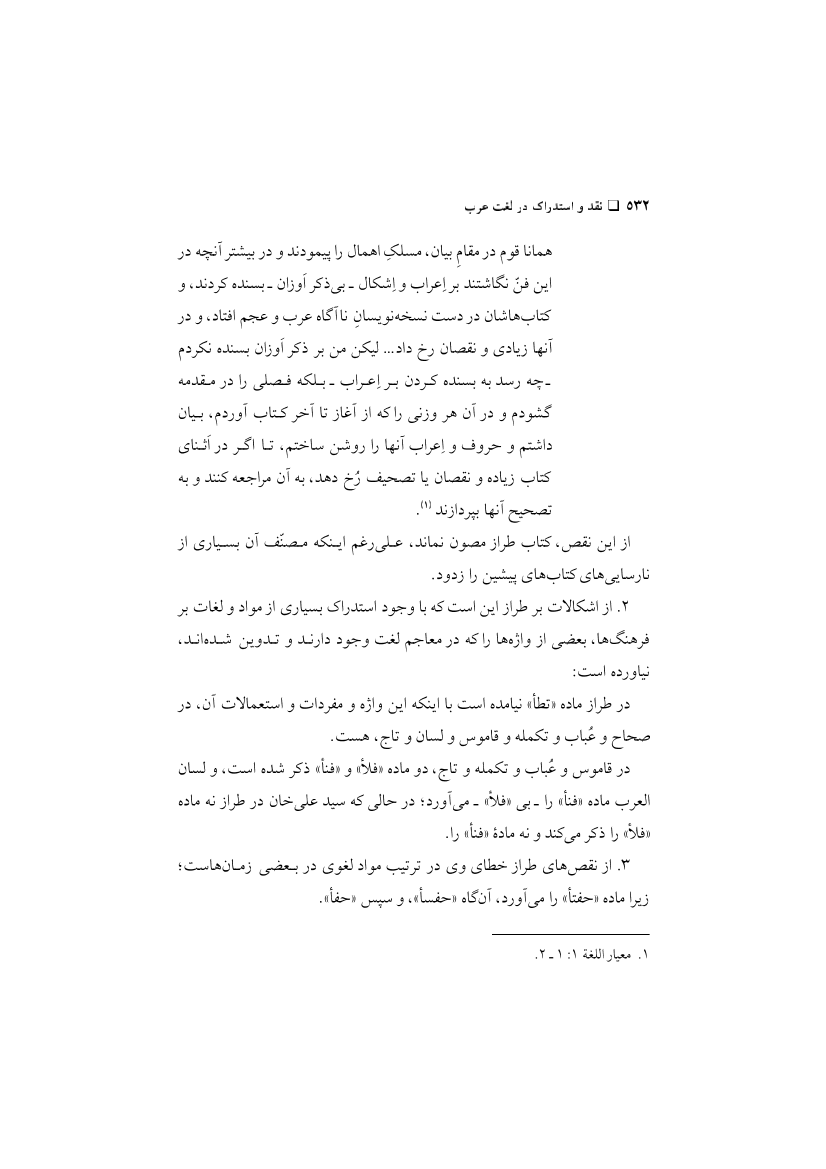 ۵۳۲ ❑ نقد و استدراک در لغت عرب
همانا قوم در مقامِ بیان، مسلکِ اهمال را پیمودند و در بیشتر آنچه در
این فنّ نگاشتند بر اِعراب و اِشکال ـ بی‌ذکر اَوزان ـ بسنده کردند، و
کتاب‌هاشان در دست نسخه‌نویسانِ ناآگاه عرب و عجم افتاد، و در
آنها زیادی و نقصان رخ داد... لیکن من بر ذکر اَوزان بسنده نکردم
ـ چه رسد به بسنده کردن بر اِعراب ـ بلکه فصلی را در مقدمه
گشودم و در آن هر وزنی را که از آغاز تا آخر کتاب آوردم، بیان
داشتم و حروف و اِعراب آنها را روشن ساختم، تا اگر در اَثنای
کتاب زیاده و نقصان یا تصحیف رُخ دهد، به آن مراجعه کنند و به
تصحیح آنها بپردازند (۱).
از این نقص، کتاب طراز مصون نماند، علی‌رغم اینکه مصنّف آن بسیاری از
نارسایی‌های کتاب‌های پیشین را زدود.
۲. از اشکالات بر طراز این است که با وجود استدراک بسیاری از مواد و لغات بر
فرهنگ‌ها، بعضی از واژه‌ها را که در معاجم لغت وجود دارند و تدوین شده‌اند،
نیاورده است:
در طراز ماده «تطأ» نیامده است با اینکه این واژه و مفردات و استعمالات آن، در
صحاح و عُباب و تکمله و قاموس و لسان و تاج، هست.
در قاموس و عُباب و تکمله و تاج، دو ماده «فلأ» و «فنأ» ذکر شده است، و لسان
العرب ماده «فنأ» را ـ بی «فلأ» ـ می‌آورد؛ در حالی که سید علی‌خان در طراز نه ماده
«فلأ» را ذکر می‌کند و نه مادهٔ «فنأ» را.
۳. از نقص‌های طراز خطای وی در ترتیب مواد لغوی در بعضی زمان‌هاست؛
زیرا ماده «حفتأ» را می‌آورد، آن‌گاه «حفسأ»، و سپس «حفأ».
۱. معیار اللغة ۱: ۱ ـ ۲.